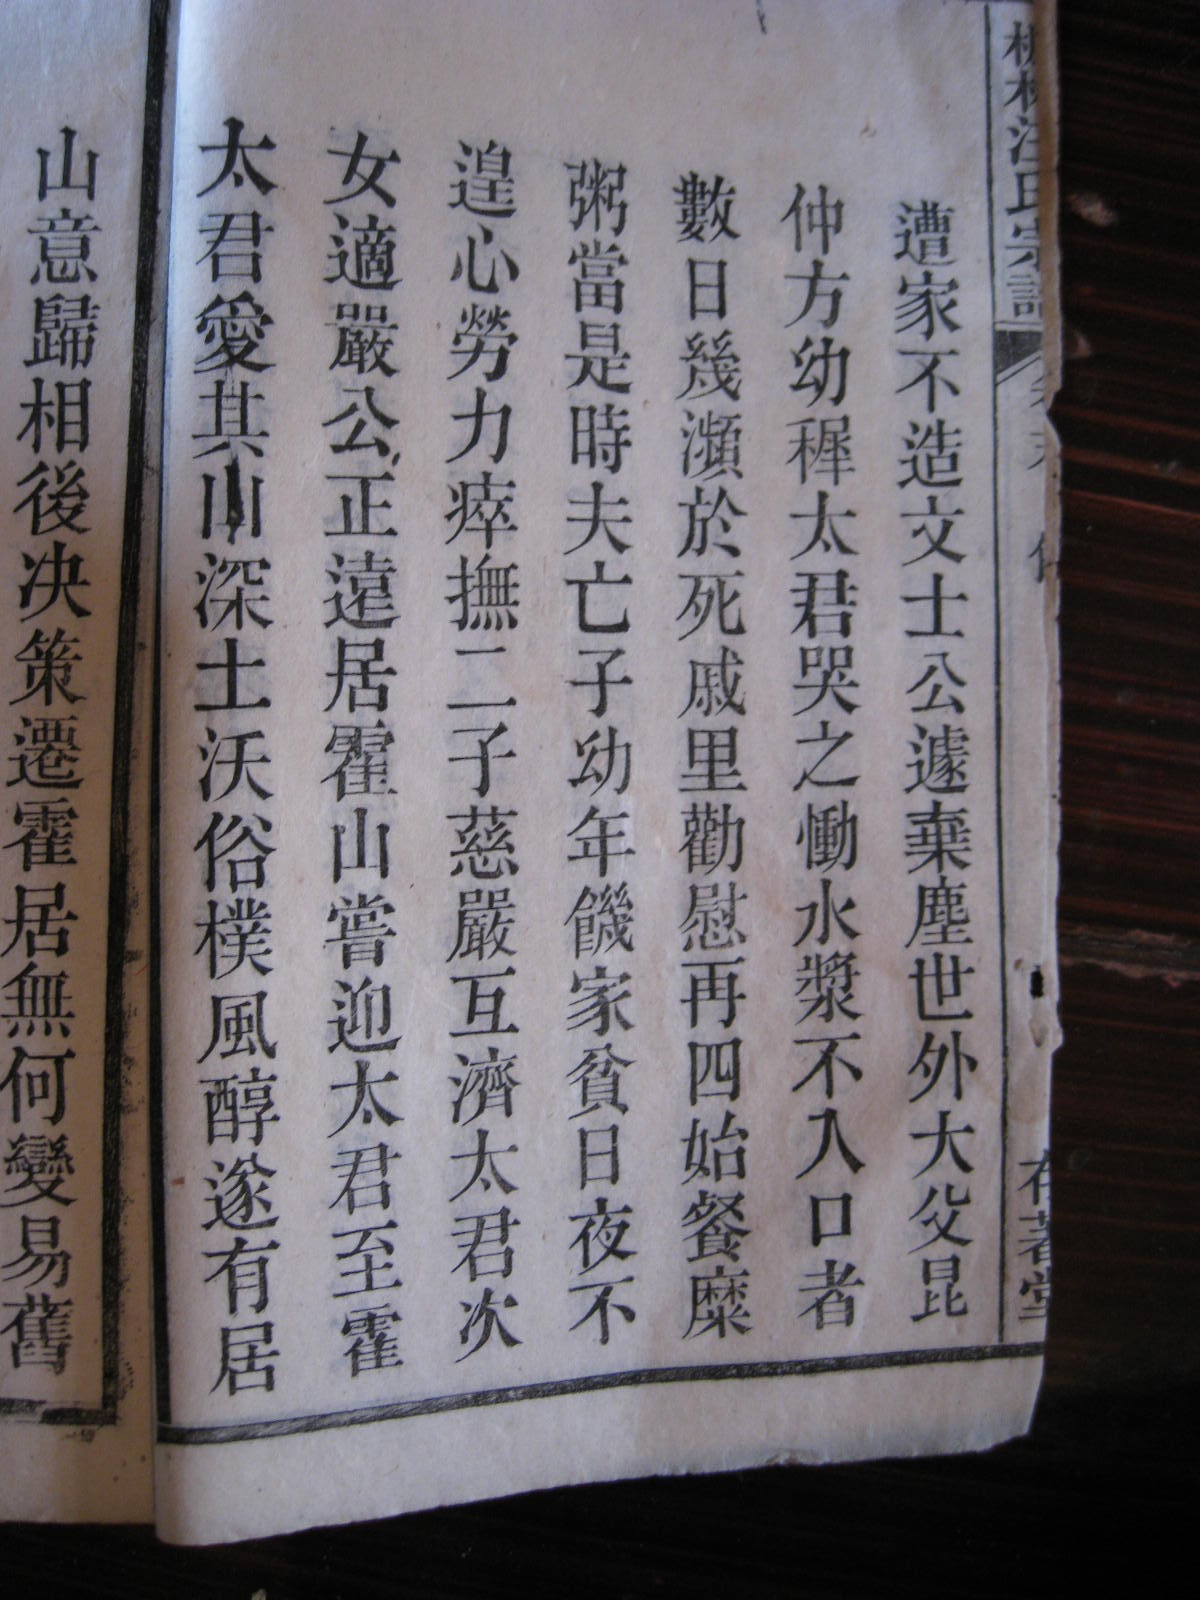 汪氏宗譜
遭家不造文士公遽棄塵世外大父昆
仲方幼穉太君哭之慟水漿不入口者
數日幾瀕於死戚里勸慰再四始餐糜
粥當是時夫亡子幼年饑家貧日夜不
遑心勞力瘁撫二子慈嚴互濟太君次
女適嚴公正遠居霍山嘗迎太君至霍
太君愛其山深土沃俗樸風醇遂有居
山意歸相後決策遷霍居無何變易舊